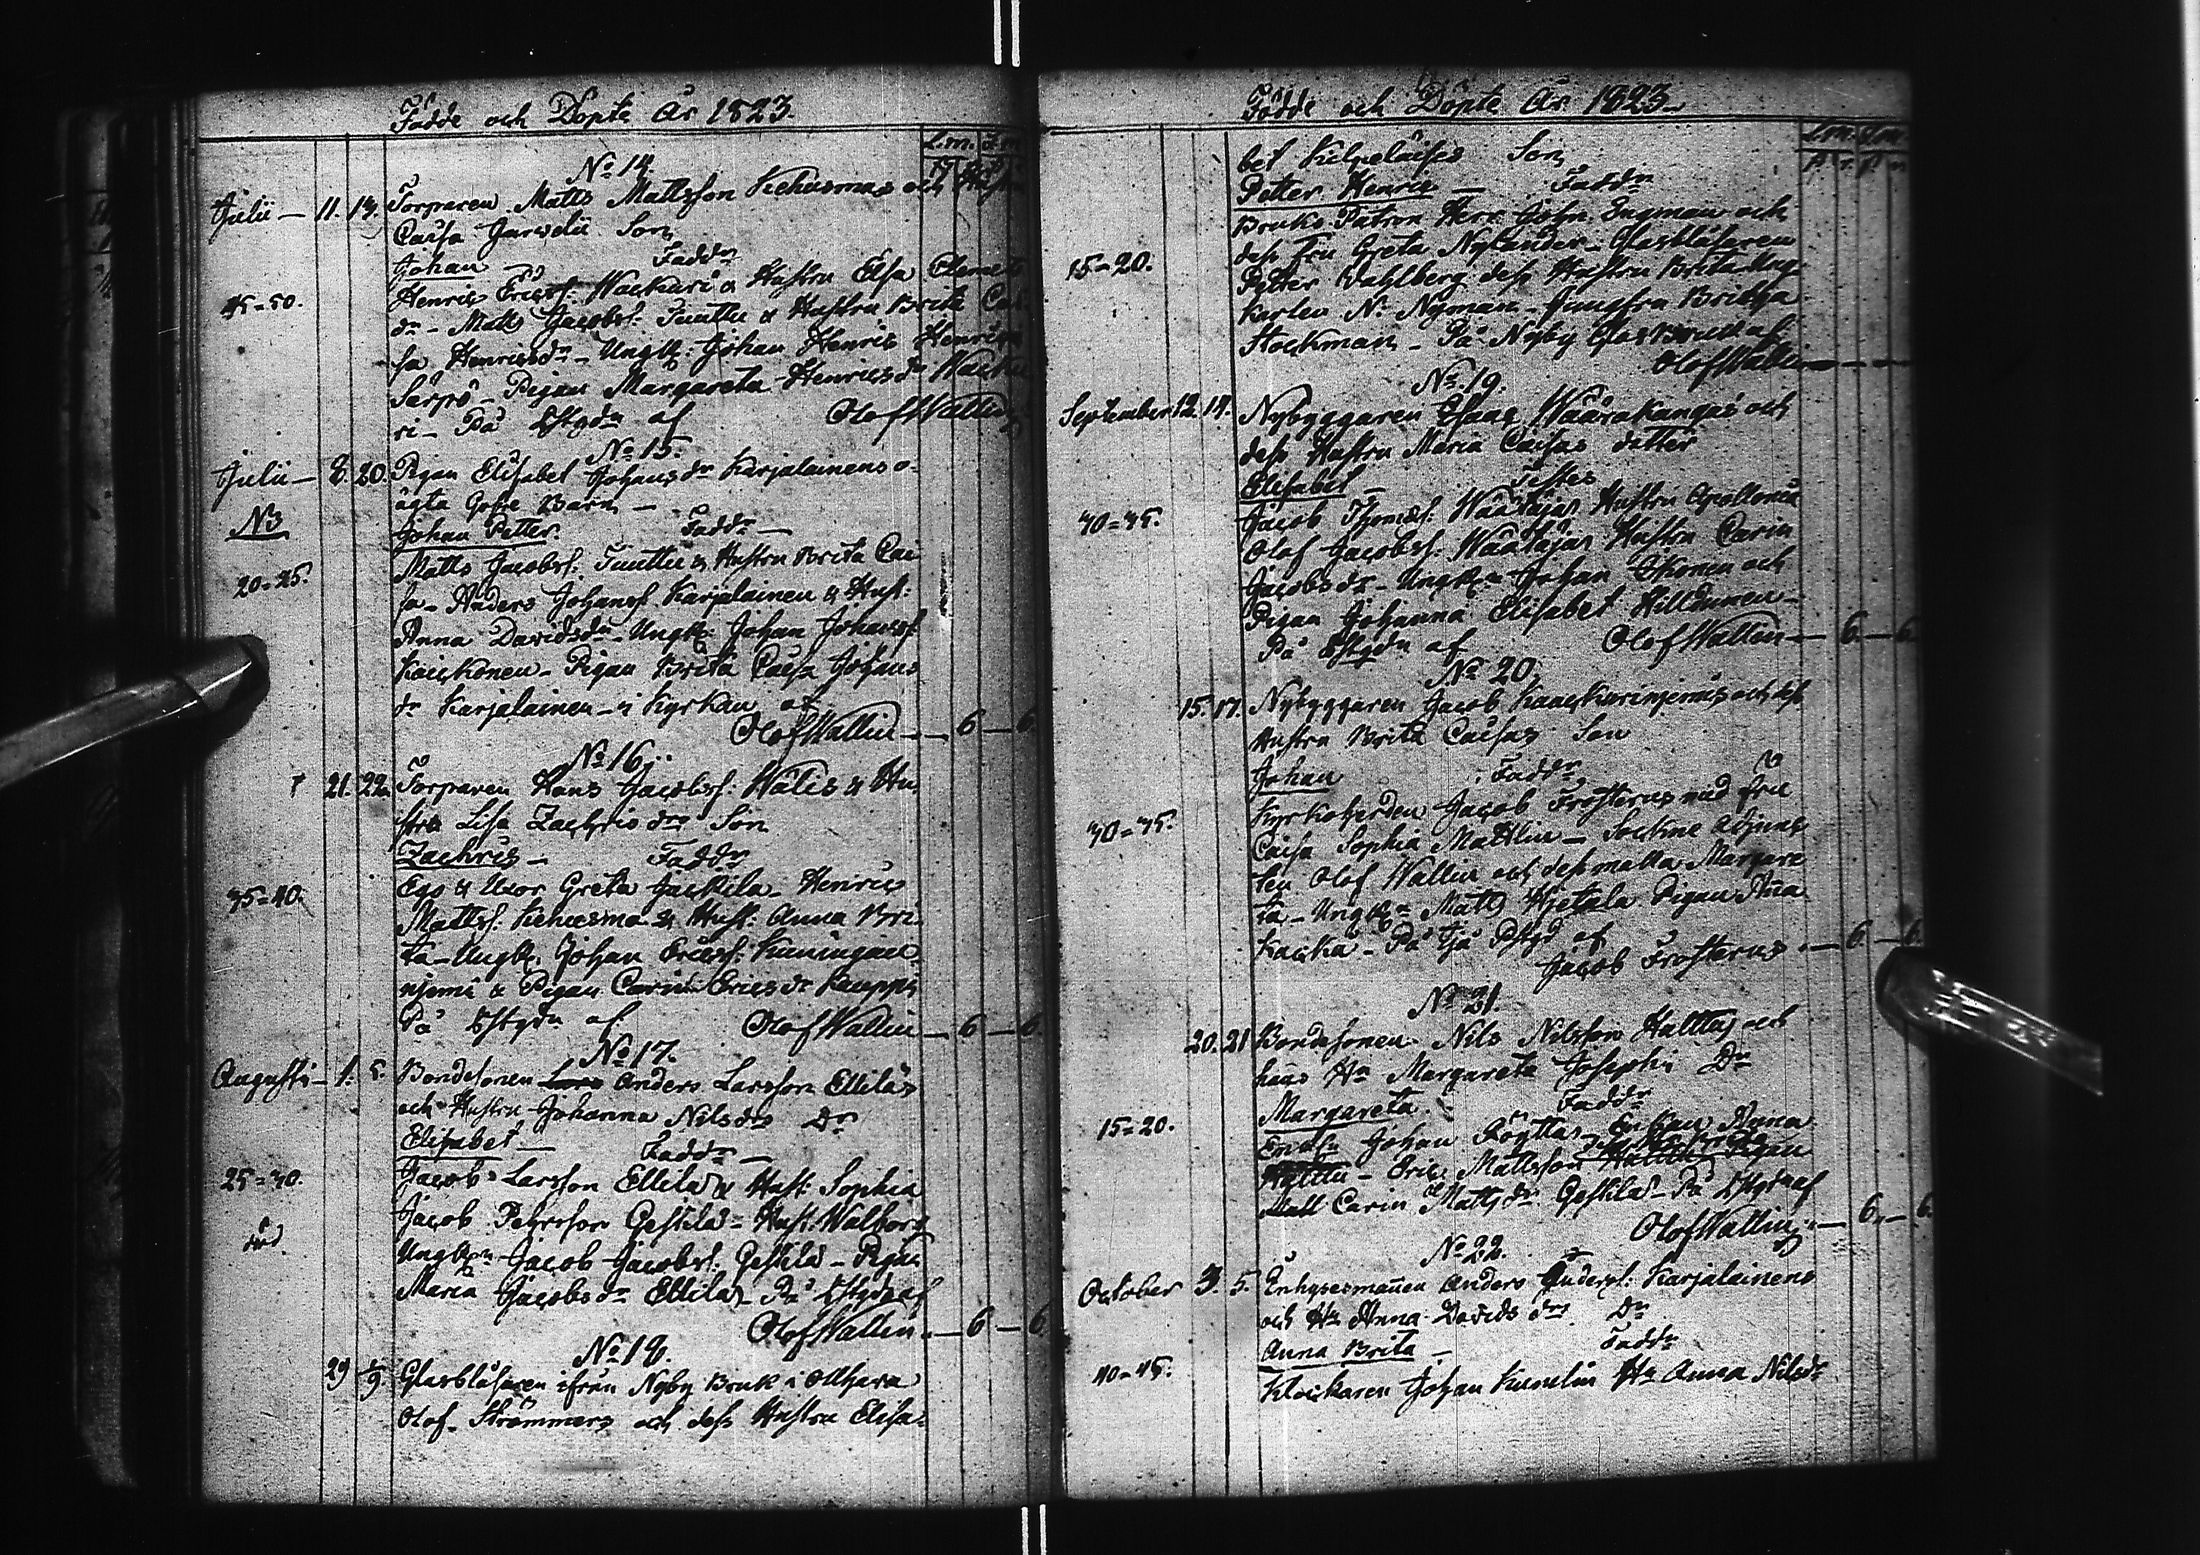 Födde och Döpte År 1823.
L.m. d.m.
No 14.
Julii — 11. 13. Torparen Matts Mattsson Kehusmas och Hustru
Caisa Jurvelii Son
Johan — Faddr
45=50. Henric Ericss: Wackuri & Hustru Elsa Clemets
dr - Matts Jacobss: Tuuttu & Hustru Brita Cai
sa Henricsdr - Ungk: Johan Henric Henricss
Särpö - Pigan Margareta Henricsdr Wacku
ri - På Pstgdn af Olof Wallin
No 15.
Julii — 8. 20. Pigan Elisabet Johansdr Karjalainens o-
ägta Gosse Barn —
N3
Johan Petter. Faddr —
20=25. Matts Jacobss: Tuuttu & Hustru Brita Cai
sa - Anders Johanss. Karjalainen & Hust:
Anna Davidsdr - Ungk: Johan Johanss
Kaickonen - Pigan Brita Caisa Johans
dr Karjalainen - i Kyrkan af
Olof Wallin — 6 — 6
No 16.
21. 22. Torparen Hans Jacobss: Wälis & Hu
stru Lisa Zachrisdrs Son
Zachris — Faddr
35=40. Ego & Uxor Greta Jackila - Henric
Mattss. Kehusma & Hust: Anna Bri
ta - Ungk. Johan Ericss: Kuningan
njemi & Pigan Carin Ericsdr Kauppi
På Pstgdn af Olof Wallin — 6 — 6.
No 17.
Augusti — 1. 5. Bondesonen Lars Anders Larsson Elliläs
och Hustru Johanna Nilsdrs Dr
Elisabet — Faddr —
25=30. Jacob Larsson Ellilä & Hust: Sophia
Jacob Pehrsson Gestilä = Hust: Walborg
Ungkn Jacob Jacobss: Gestilä - Pigan
Maria Jacobsdr Ellilä - På Pstgdn af
Olof Wallin. — 6 — 6
No 18.
29 5/9 Glasblåsaren ifrån Nyby Bruk i Olhava
Olof Strömmers och dess Hustru Elisa=
Födde och Döpte År 1823.
L.m. d.m.
p. r. p. r.
bet Kilpeläises Son
Petter Henric — Faddr
15=20. Bruks Patron Herr Johan Engman och
dess Fru Greta Nylander - Glasblåsaren
Petter Wahlberg dess Hustru Brita Ung
Karlen N. Nyman - Jungfru Bridgea
Stockman - På Nyby Glasbruk af
Olof Wallin — — —
No 19.
September 12. 14. Nybyggaren Esaas Wäärakangas och
dess Hustru Maria Caisas dotter
Elisabet — Testes
40=45. Jacob Thomass: Wäätäjä Hustru Apollonia
Olof Jacobss: Wäätäjä Hustru Carin
Jacobsdr - Ungkn Johan Ikonen och
Pigan Johanna Elisabet Hilldunen -
På Pstgdn af Olof Wallin — 6. — 6
No 20.
15. 17. Nybyggaren Jacob Kaackurinjemis och dess
Hustru Brita Caisas Son
Johan Faddr
40=45. Kyrkoherden Jacob Frosterus med fru
Caisa Sophia Mathlin - Sockne Adjunc
ten Olof Wallin och dess maka Margare
ta - Ungkn Matts Hjetala Pigan Anna
Kaicka - På Ijå Pstgd af
Jacob Frosterus — 6. — 6.
No 21.
20. 21 Bondesonen Nils Nilsson Huttus och
hans Hu Margareta Josephi Dr
Margareta. Faddr
15=20. Johan Röyttä - Enkan Anna
Eric Mattsson Pigan
Carin Mattsdr Gestilä - På Pstgdn af
Olof Wallin. — 6. — 6.
No 22.
October 3. 5. Enhysesmannen Anders Anderss: Karjalainens
och Hu Anna Davids drs Dr
Anna Brita — Faddr
40=45. Klockaren Johan Kumlin Hu Anna Nilsdr